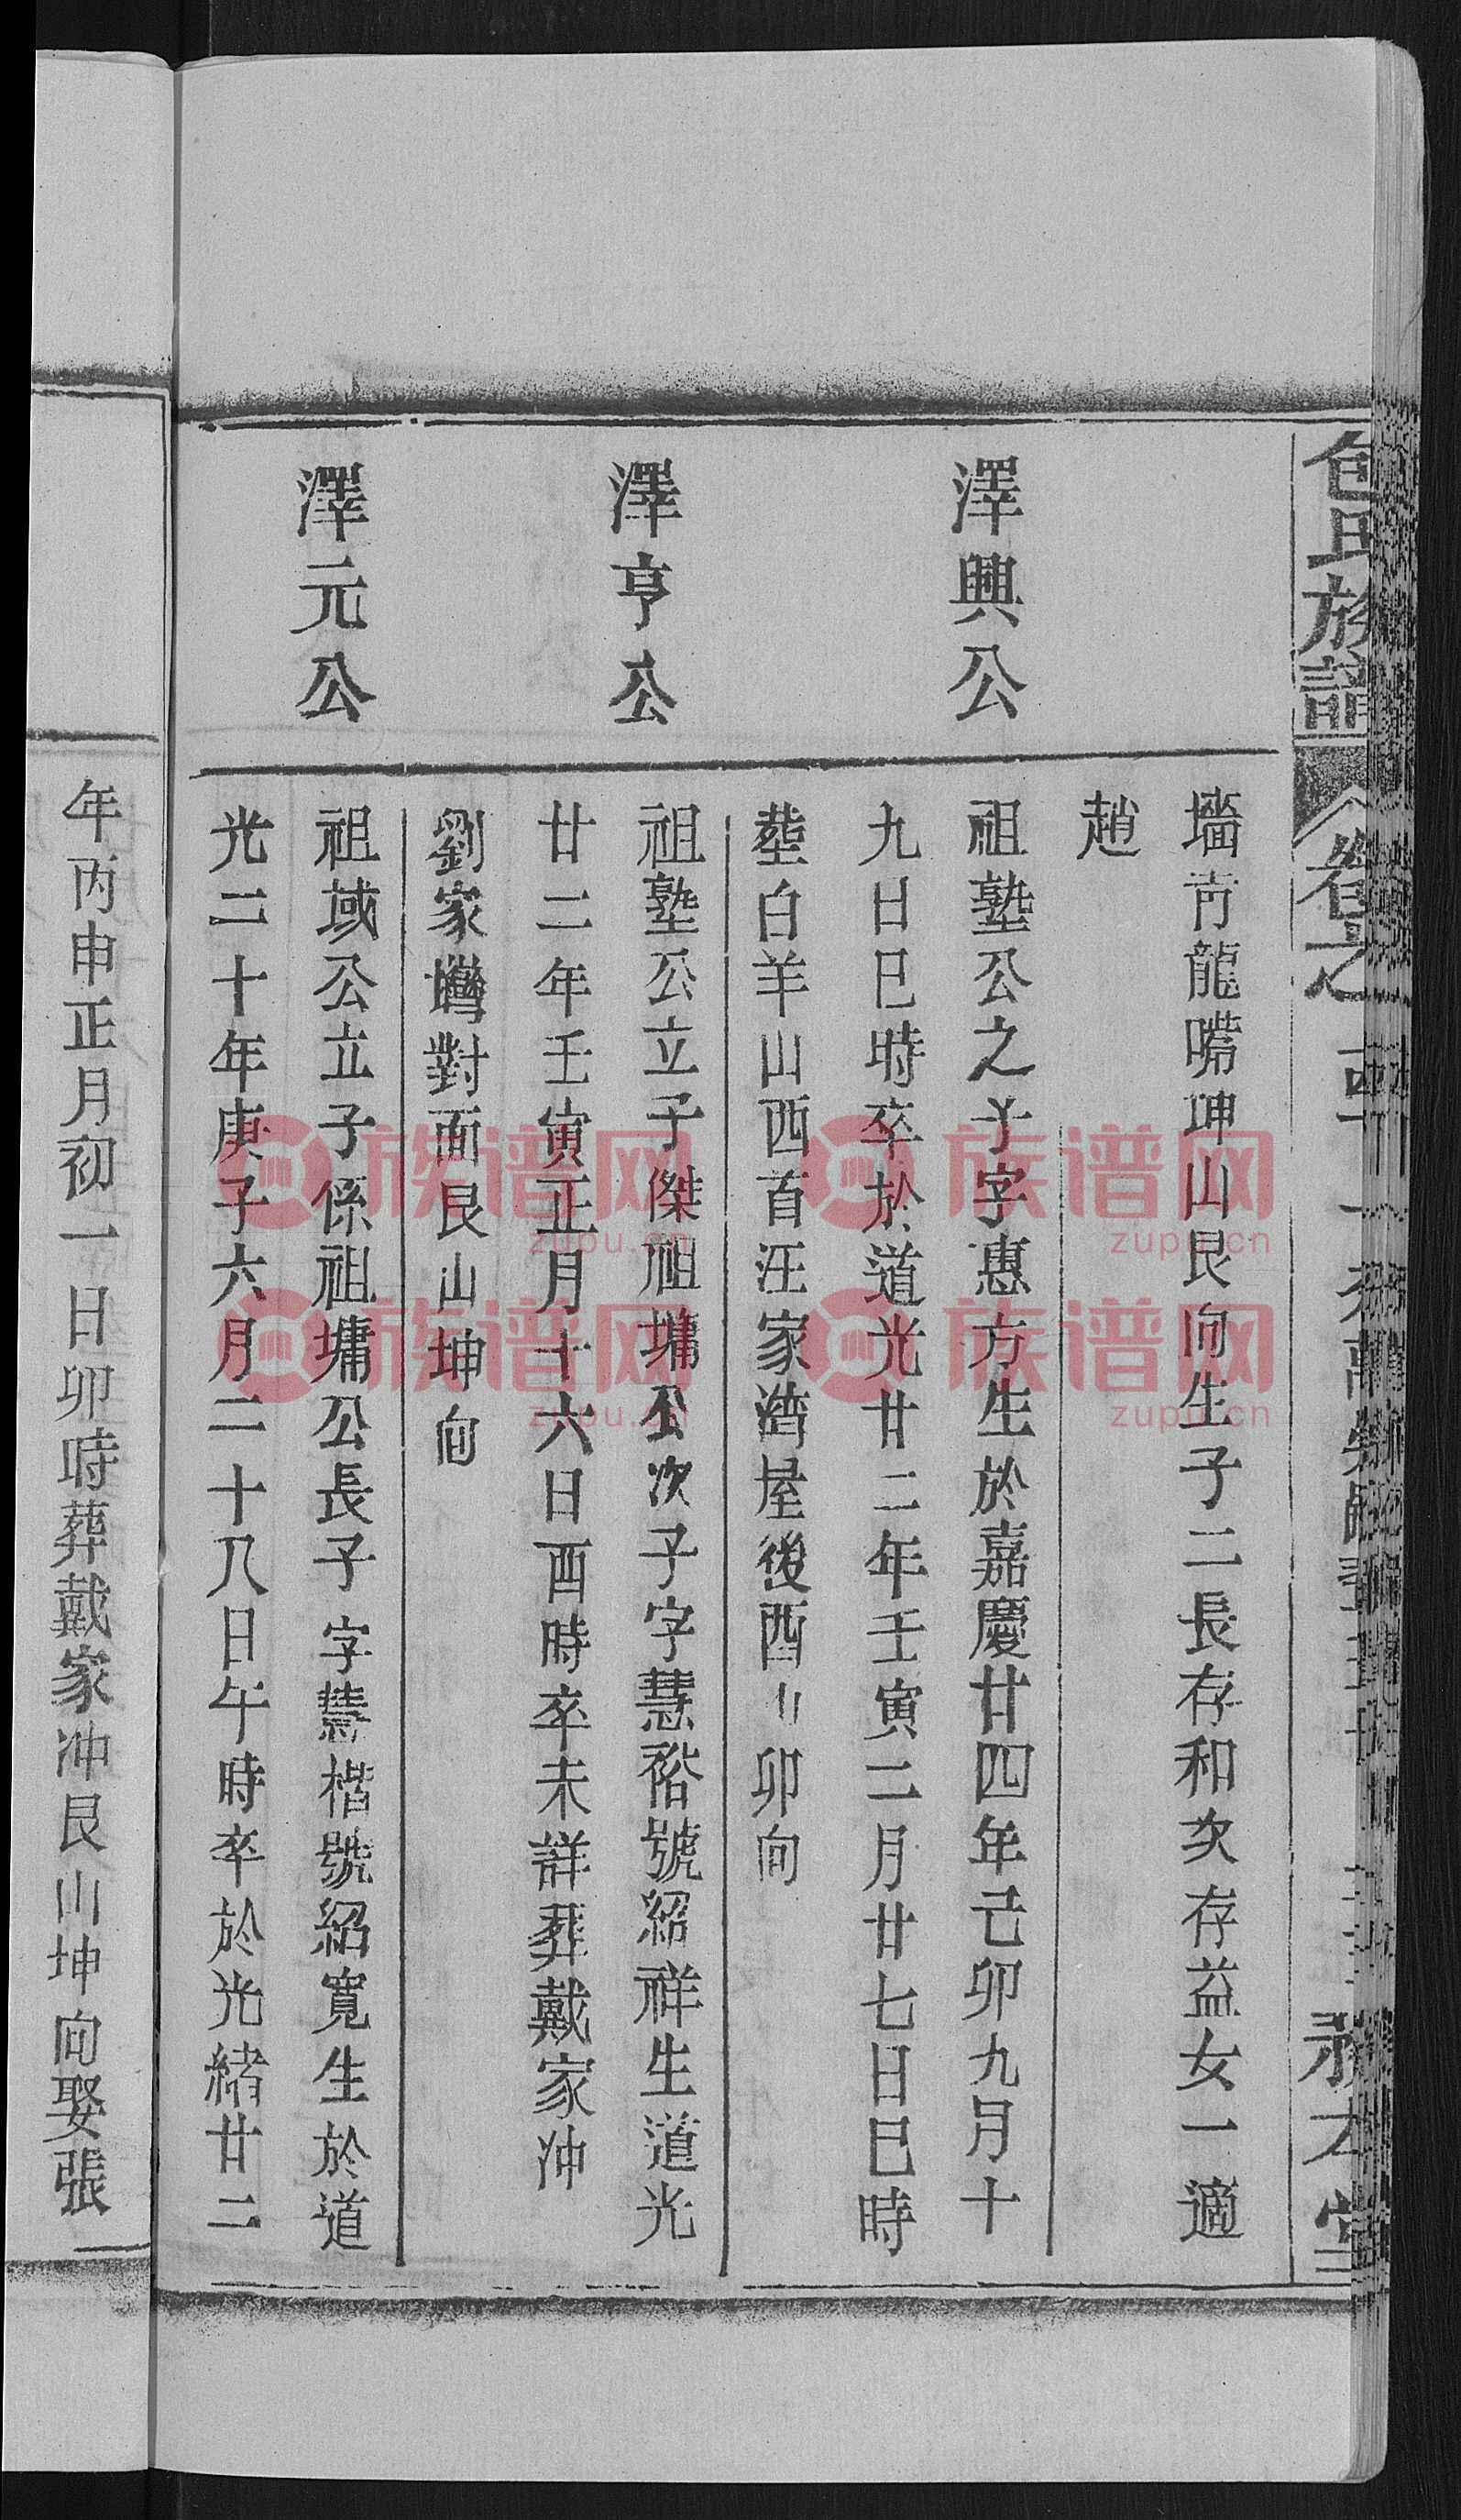 包氏族譜
卷之
墻靑龍嘴坤山艮向生子二長存和次存益女一適
趙
澤興公
祖塾公之子字惠方生於嘉慶廿四年己卯九月十
九日巳時卒於道光廿二年壬寅二月廿七日巳時
塟白羊山西首汪家濟屋後酉山卯向
澤亨公
祖塾公立子傑祖墉公次子字慧裕號紹祥生道光
廿二年壬寅正月十六日酉時卒未詳葬戴家冲
劉家壪對面艮山坤向
澤元公
祖域公立子係祖墉公長子字慧楷號紹寬生於道
光二十年庚子六月二十八日午時卒於光緒廿二
年丙申正月初一日卯時葬戴家冲艮山坤向娶張
族谱网
zupu.cn
族谱网
zupu.cn
族谱网
zupu.cn
族谱网
zupu.cn